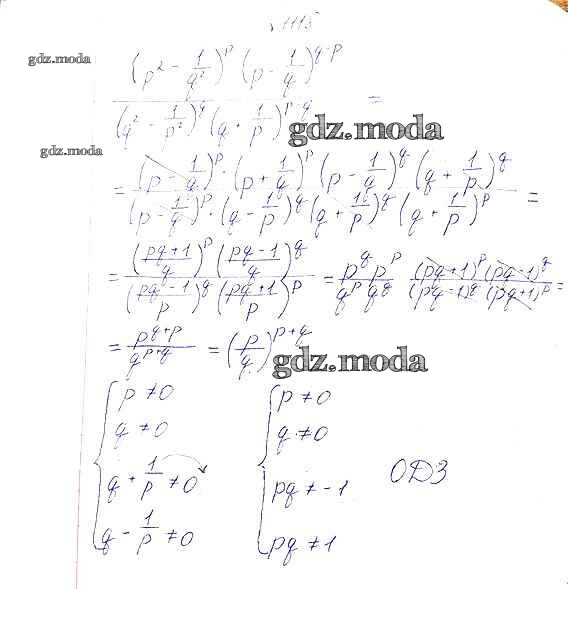 № 1115
gdz.moda
(p² - 1/q²)^p (p - 1/q)^(q-p)
(q² - 1/p²)^q (q + 1/p)^(p-q) =
gdz.moda
gdz.moda
= (p - 1/q)^p · (p + 1/q)^p (p - 1/q)^q (q + 1/p)^q
(p - 1/q)^p · (q - 1/p)^q (q + 1/p)^q (q + 1/p)^p =
= ((pq+1)/q)^p ((pq-1)/q)^q / ((pq-1)/p)^q ((pq+1)/p)^p = p^q p^p / q^p q^q (pq+1)^p (pq-1)^q / (pq-1)^q (pq+1)^p =
= p^(q+p) / q^(p+q) = (p/q)^(p+q)
gdz.moda
p ≠ 0 p ≠ 0
q ≠ 0 q ≠ 0
q + 1/p ≠ 0 pq ≠ -1 ОДЗ
q - 1/p ≠ 0 pq ≠ 1